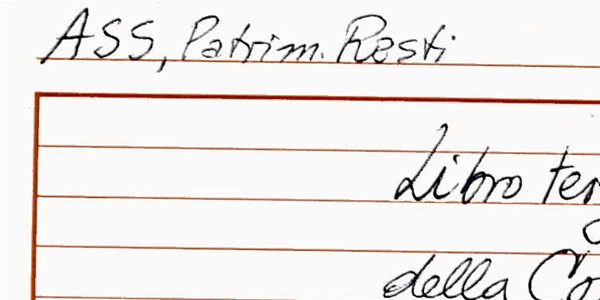 ASS, Patrim. Resti
Libro
della